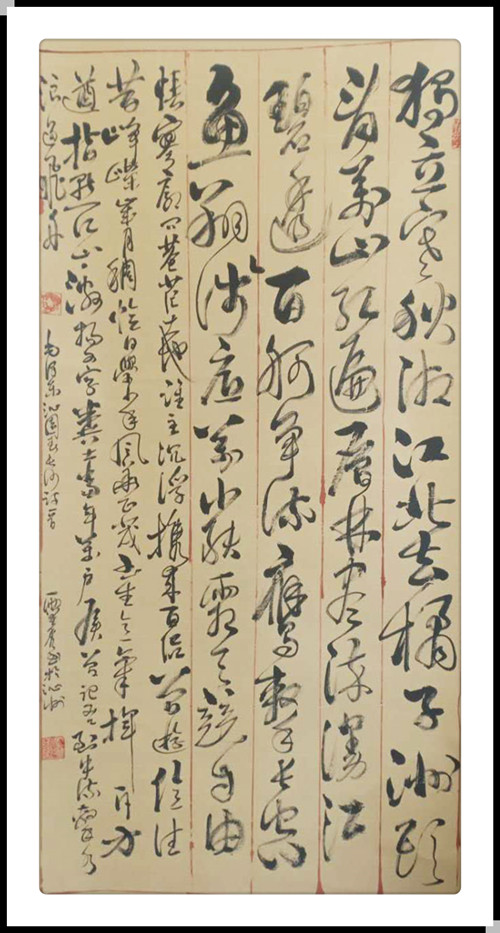 獨立寒秋湘江北去橘子洲頭
看萬山紅遍層林盡染漫江
碧透百舸爭流鷹擊長空
魚翔淺底萬類霜天競自由
悵寥廓問蒼茫大地誰主沉浮攜來百侶曾遊憶往
昔崢嶸歲月稠恰同學少年風華正茂書生意氣揮斥方
遒指點江山激揚文字糞土當年萬戶侯曾記否到中流擊水
浪遏飛舟 毛澤東沁園春長沙 書於沁州